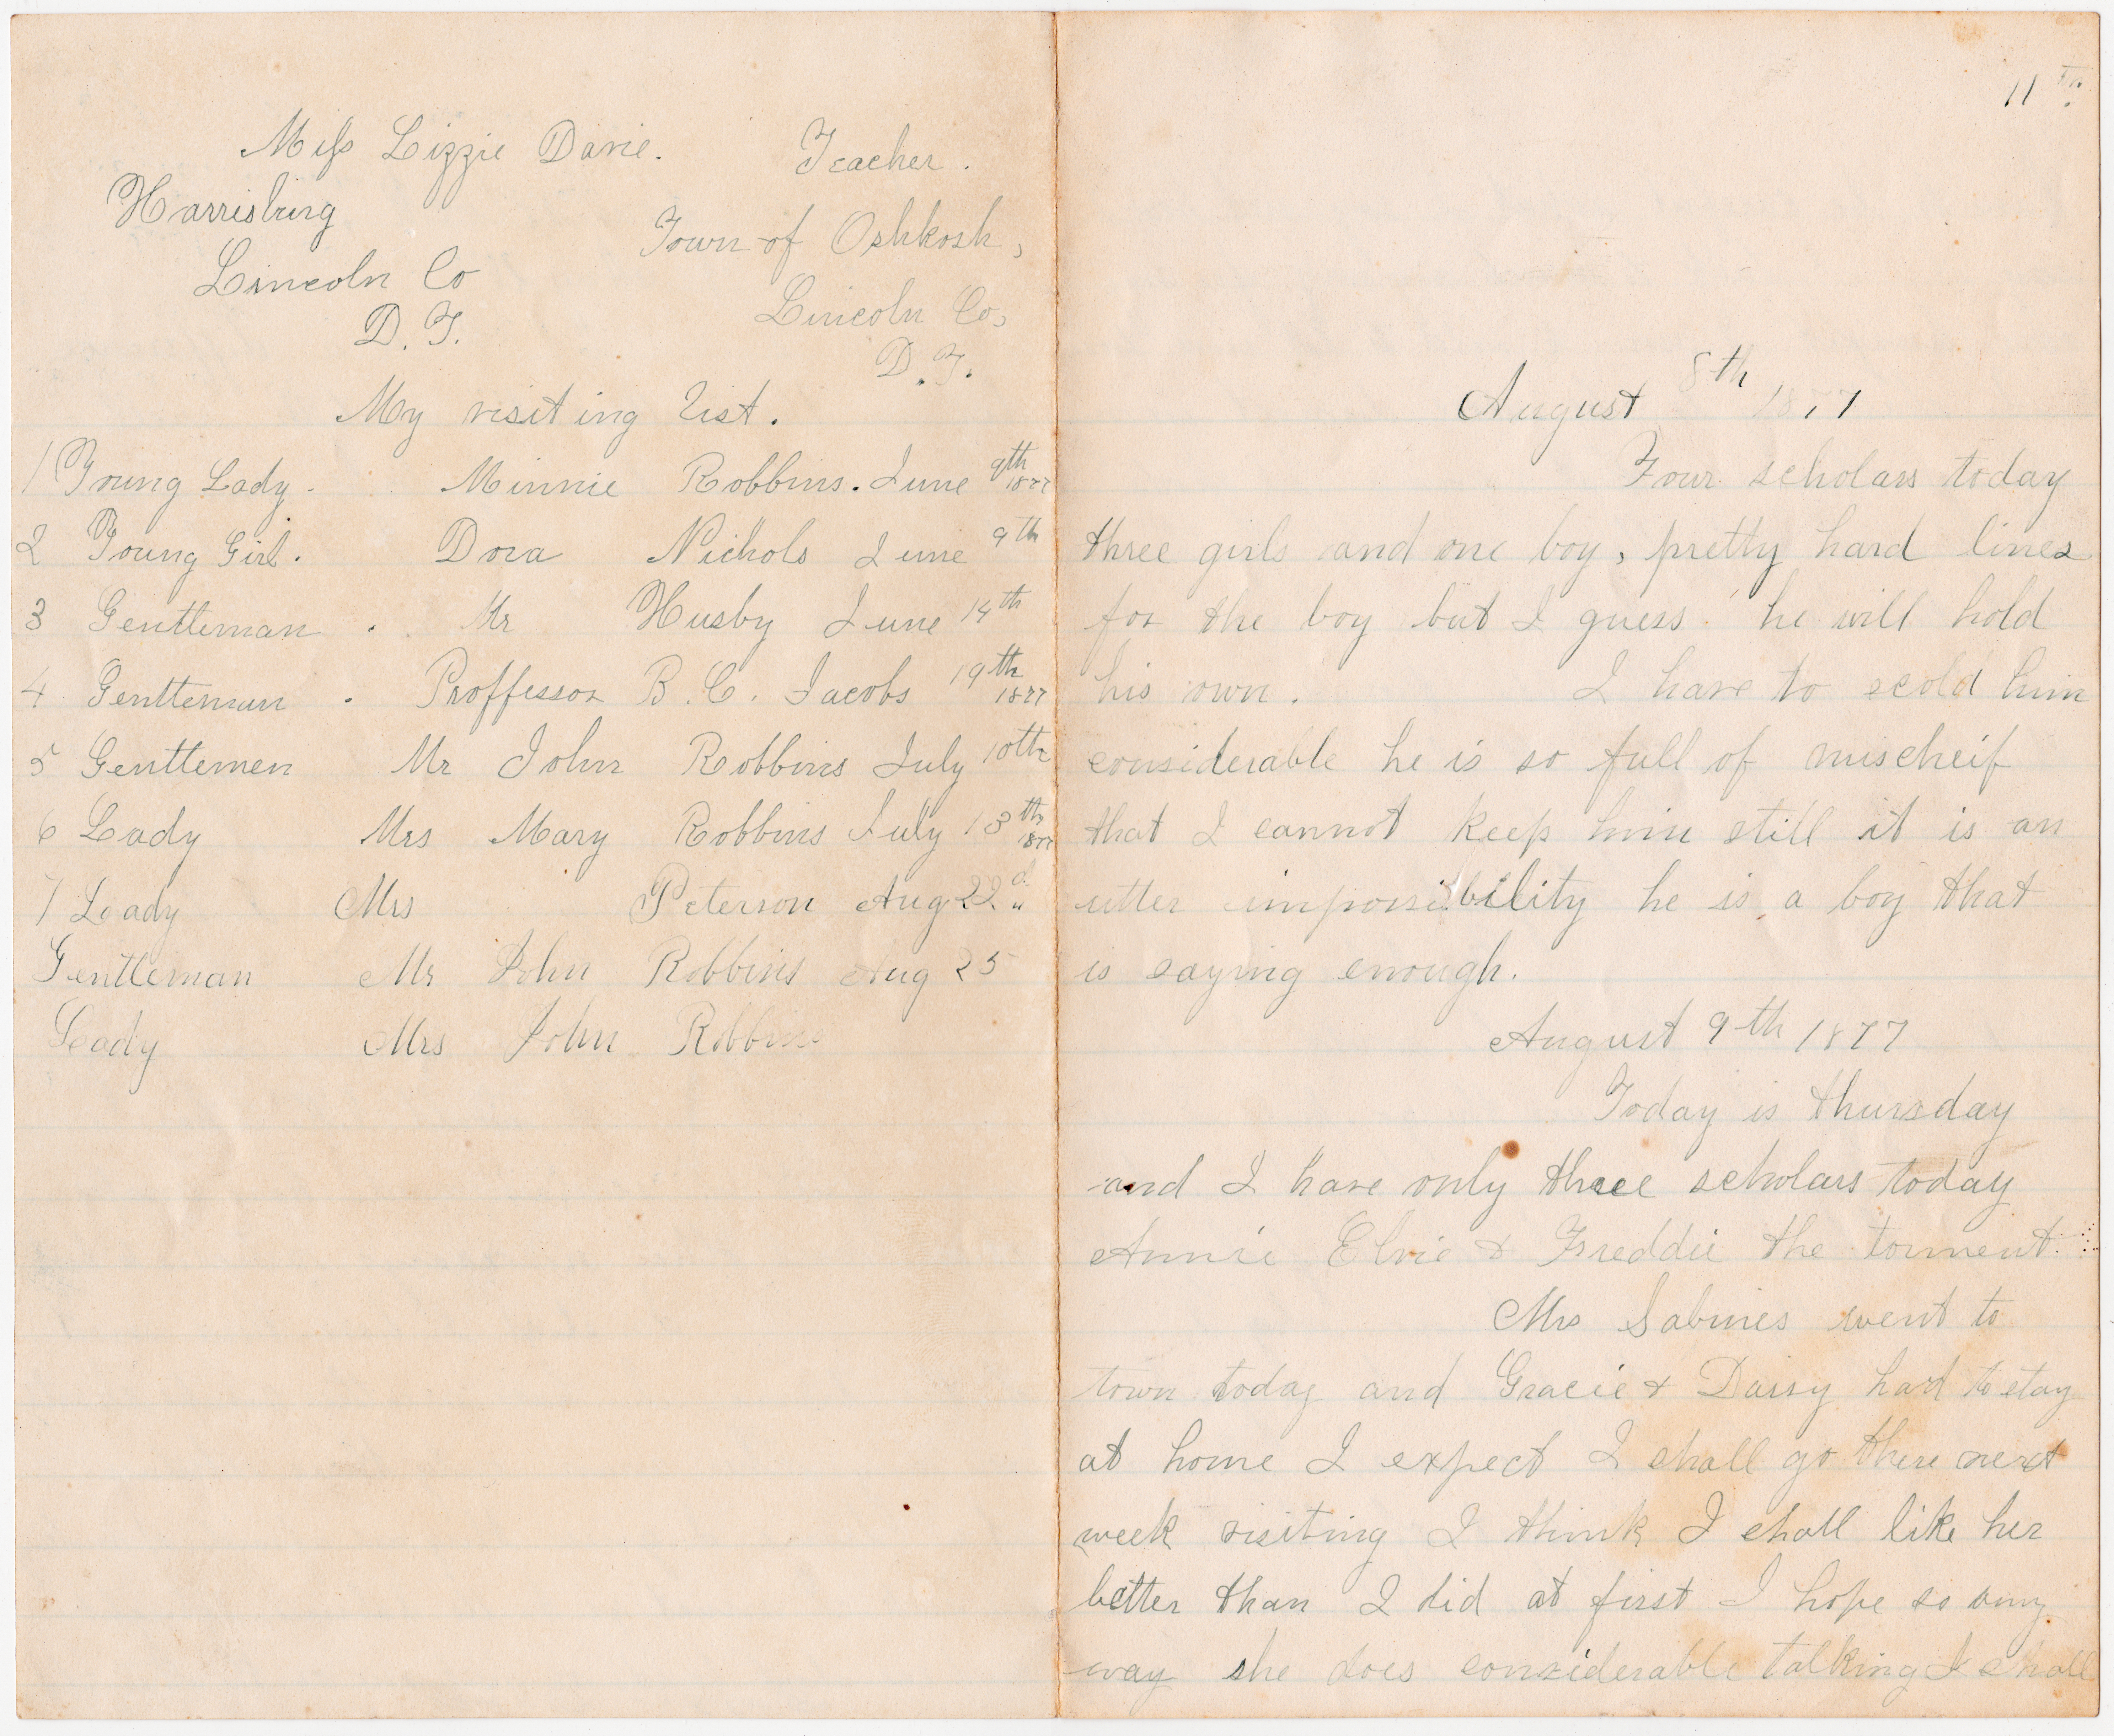 Miss Lizzie Davie. Teacher.
Harrisburg Town of Oshkosh,
Lincoln Co Lincoln Co,
D. T. D. T.
My visiting List.
1 Young Lady. Minnie Robbins. June 9th 1877
2 Young Girl. Dora Nichols June 9th
3 Gentleman. Mr Husby June 14th
4 Gentleman. Proffessor B. C. Jacobs 19th 1877
5 Gentlemen Mr John Robbins July 10th
6 Lady Mrs Mary Robbins July 13th 1877
7 Leady Mrs Peterson Aug 22d
Gentleman Mr John Robbins Aug 25
Leady Mrs John Robbins
11th.
August 8th 1877
Four scholars today
three girls and one boy, pretty hard lines
for the boy but I guess he will hold
his own. I have to scold him
considerable he is so full of mischeif
that I cannot keep him still it is an
utter impossibility he is a boy that
is saying enough.
August 9th 1877
Today is thursday
and I have only three scholars today
Annie Elvie & Freddie the torment.
Mrs Sabines went to
town today and Gracie & Daisy had to stay
at home I expect I shall go there next
week visiting I think I shall like her
better than I did at first I hope so any
way she does considerable talking I shall